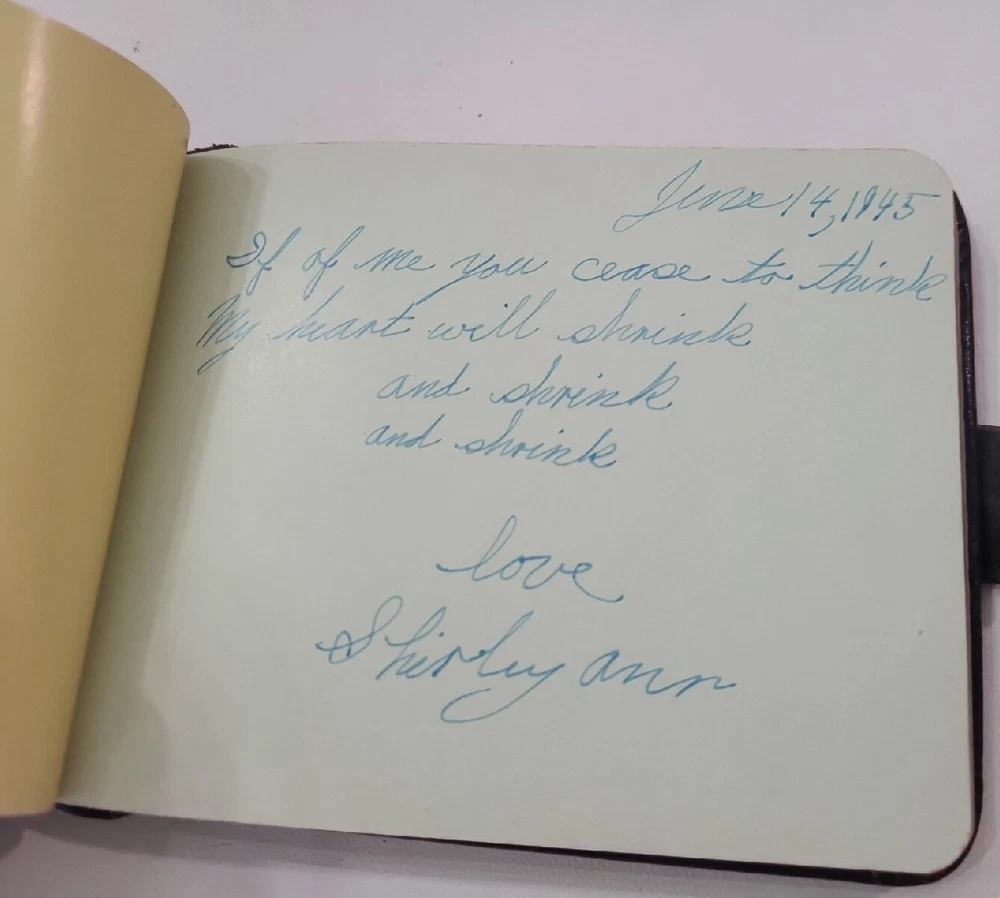 June 14, 1945
If of me you cease to think
My heart will shrink
and shrink
and shrink
love
Shirley ann